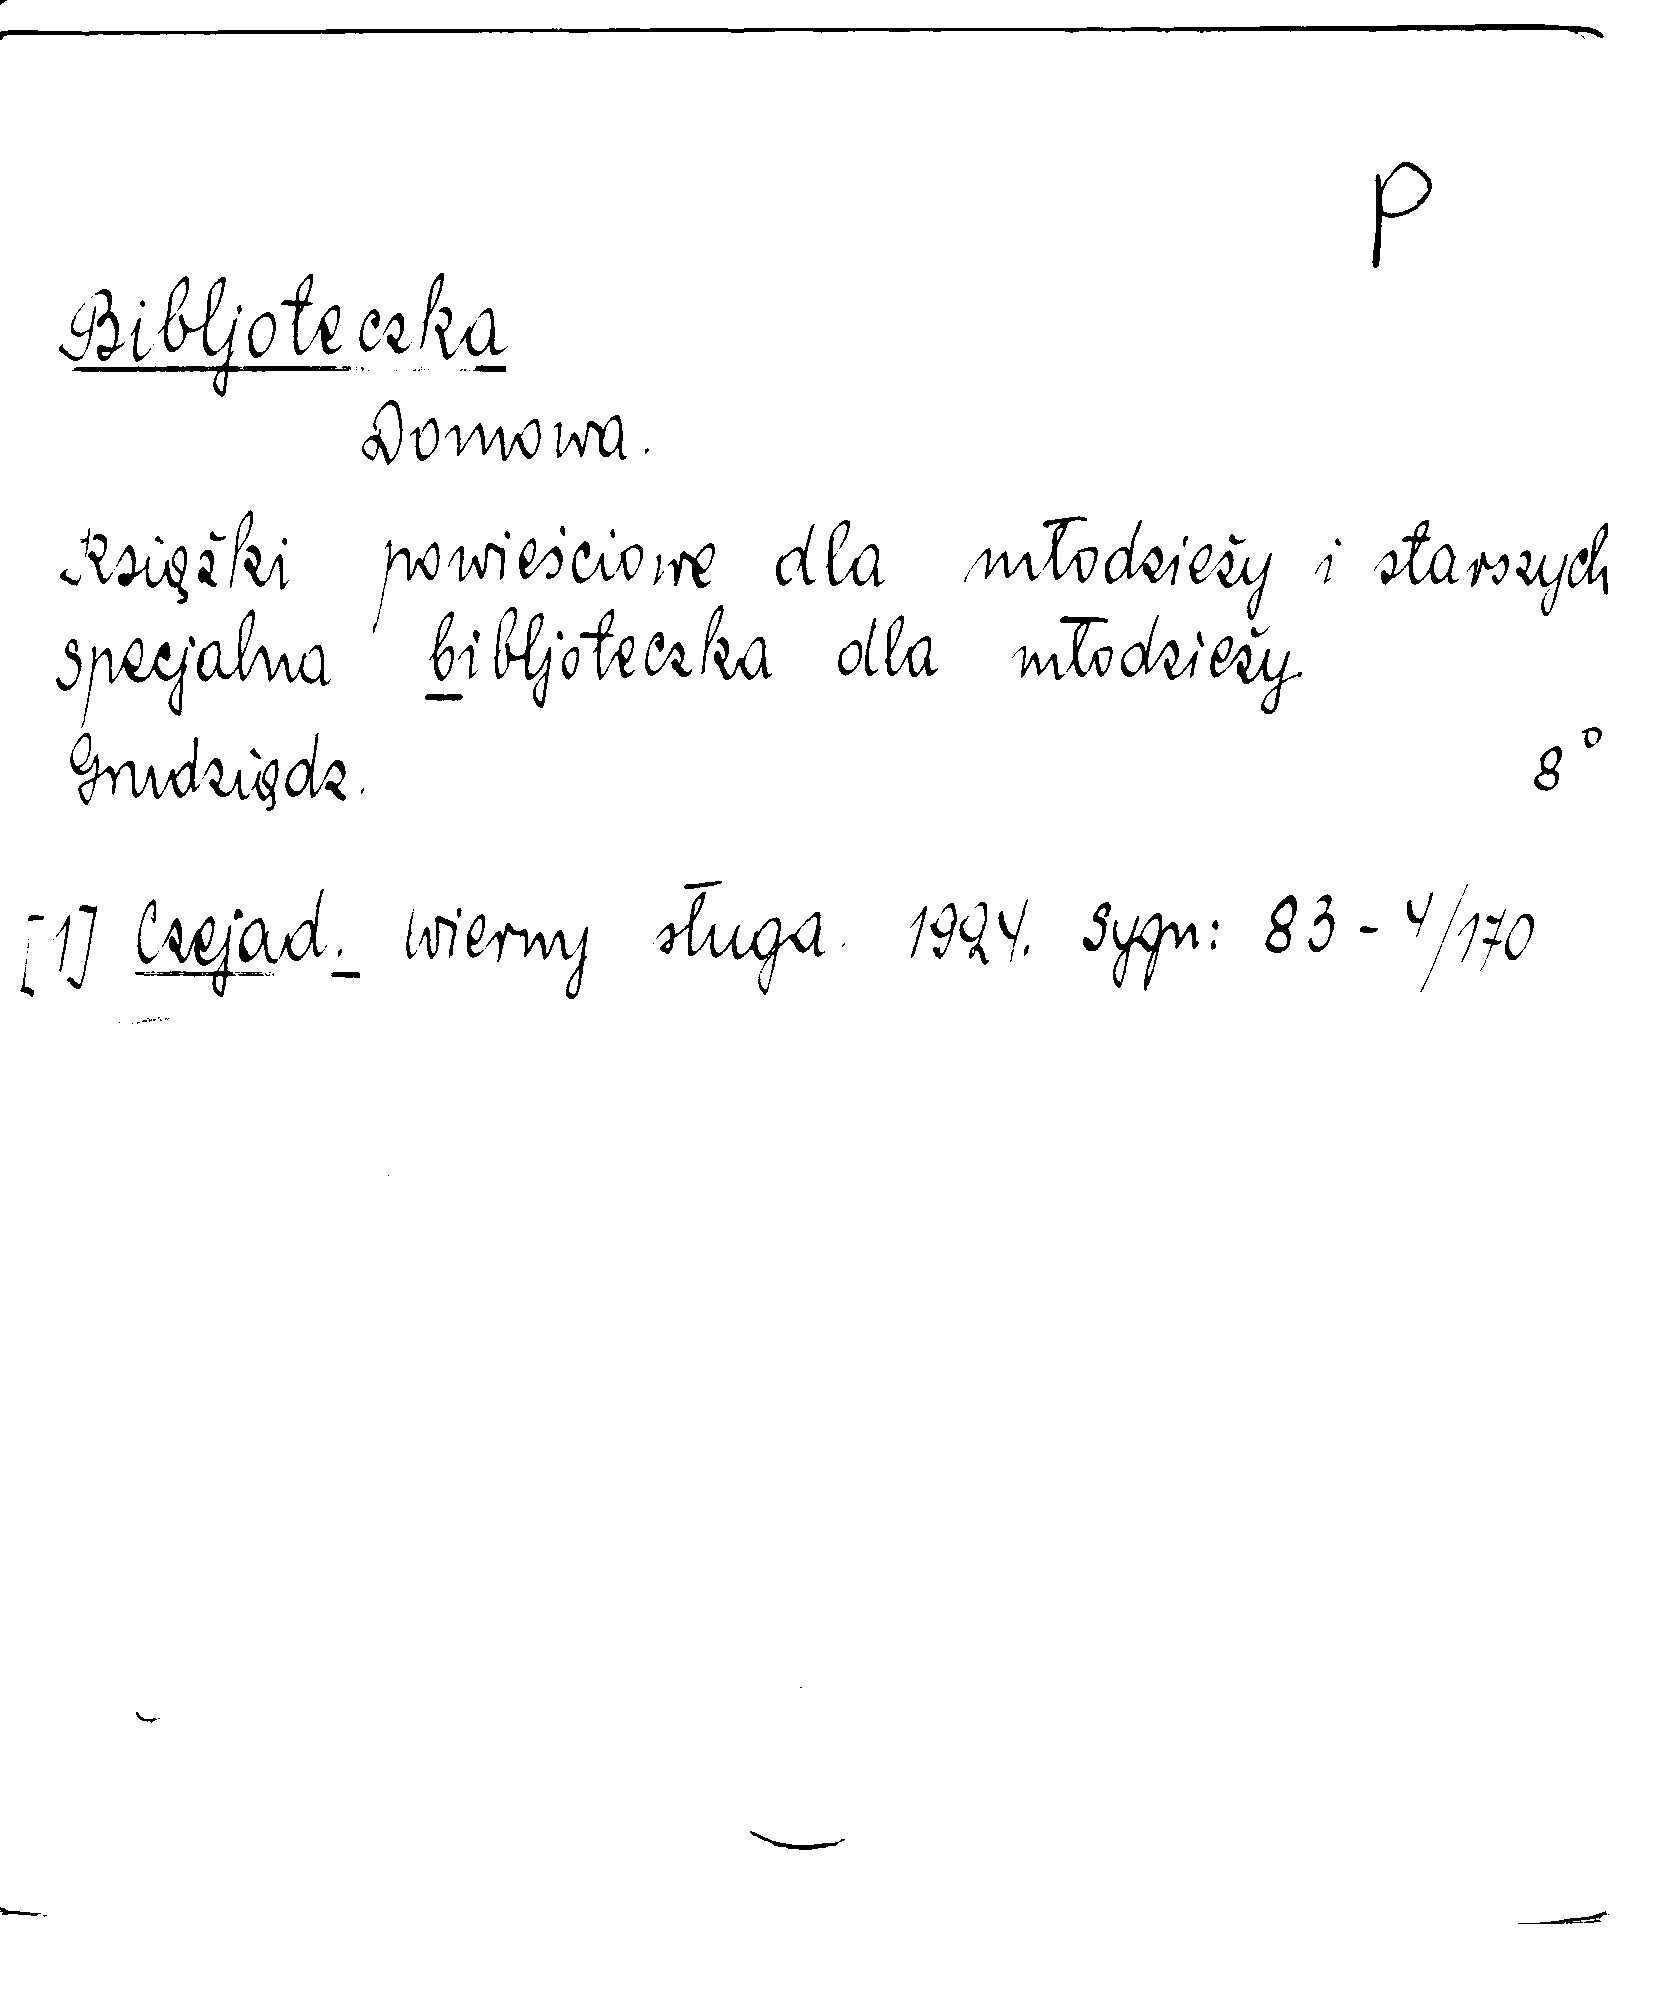 P
Bibljoteczka
Domowa.
Książki powieściowe dla młodzieży i starszych
specjalna bibljoteczka dla młodzieży.
Grudziądz. 8°
[1] Czejad. Wierny sługa. 1924. Sygn: 83-4/170